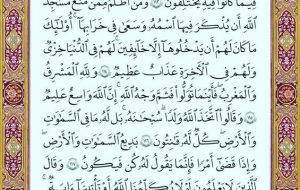 فِيمَا كَانُوا۟ فِيهِ يَخْتَلِفُونَ ﴿١١٣﴾ وَمَنْ أَظْلَمُ مِمَّن مَّنَعَ مَسَٰجِدَ
ٱللَّهِ أَن يُذْكَرَ فِيهَا ٱسْمُهُۥ وَسَعَىٰ فِى خَرَابِهَآ أُو۟لَٰٓئِكَ
مَا كَانَ لَهُمْ أَن يَدْخُلُوهَآ إِلَّا خَآئِفِينَ لَهُمْ فِى ٱلدُّنْيَا خِزْىٌ
وَلَهُمْ فِى ٱلْءَاخِرَةِ عَذَابٌ عَظِيمٌ ﴿١١٤﴾ وَلِلَّهِ ٱلْمَشْرِقُ
وَٱلْمَغْرِبُ فَأَيْنَمَا تُوَلُّوا۟ فَثَمَّ وَجْهُ ٱللَّهِ إِنَّ ٱللَّهَ وَٰسِعٌ عَلِيمٌ
﴿١١٥﴾ وَقَالُوا۟ ٱتَّخَذَ ٱللَّهُ وَلَدًا سُبْحَٰنَهُۥ بَل لَّهُۥ مَا فِى ٱلسَّمَٰوَٰتِ
وَٱلْأَرْضِ كُلٌّ لَّهُۥ قَٰنِتُونَ ﴿١١٦﴾ بَدِيعُ ٱلسَّمَٰوَٰتِ وَٱلْأَرْضِ
وَإِذَا قَضَىٰٓ أَمْرًا فَإِنَّمَا يَقُولُ لَهُۥ كُن فَيَكُونُ ﴿١١٧﴾ وَقَالَ
ٱلَّذِينَ لَا يَعْلَمُونَ لَوْلَا يُكَلِّمُنَا ٱللَّهُ أَوْ تَأْتِينَآ ءَايَةٌ